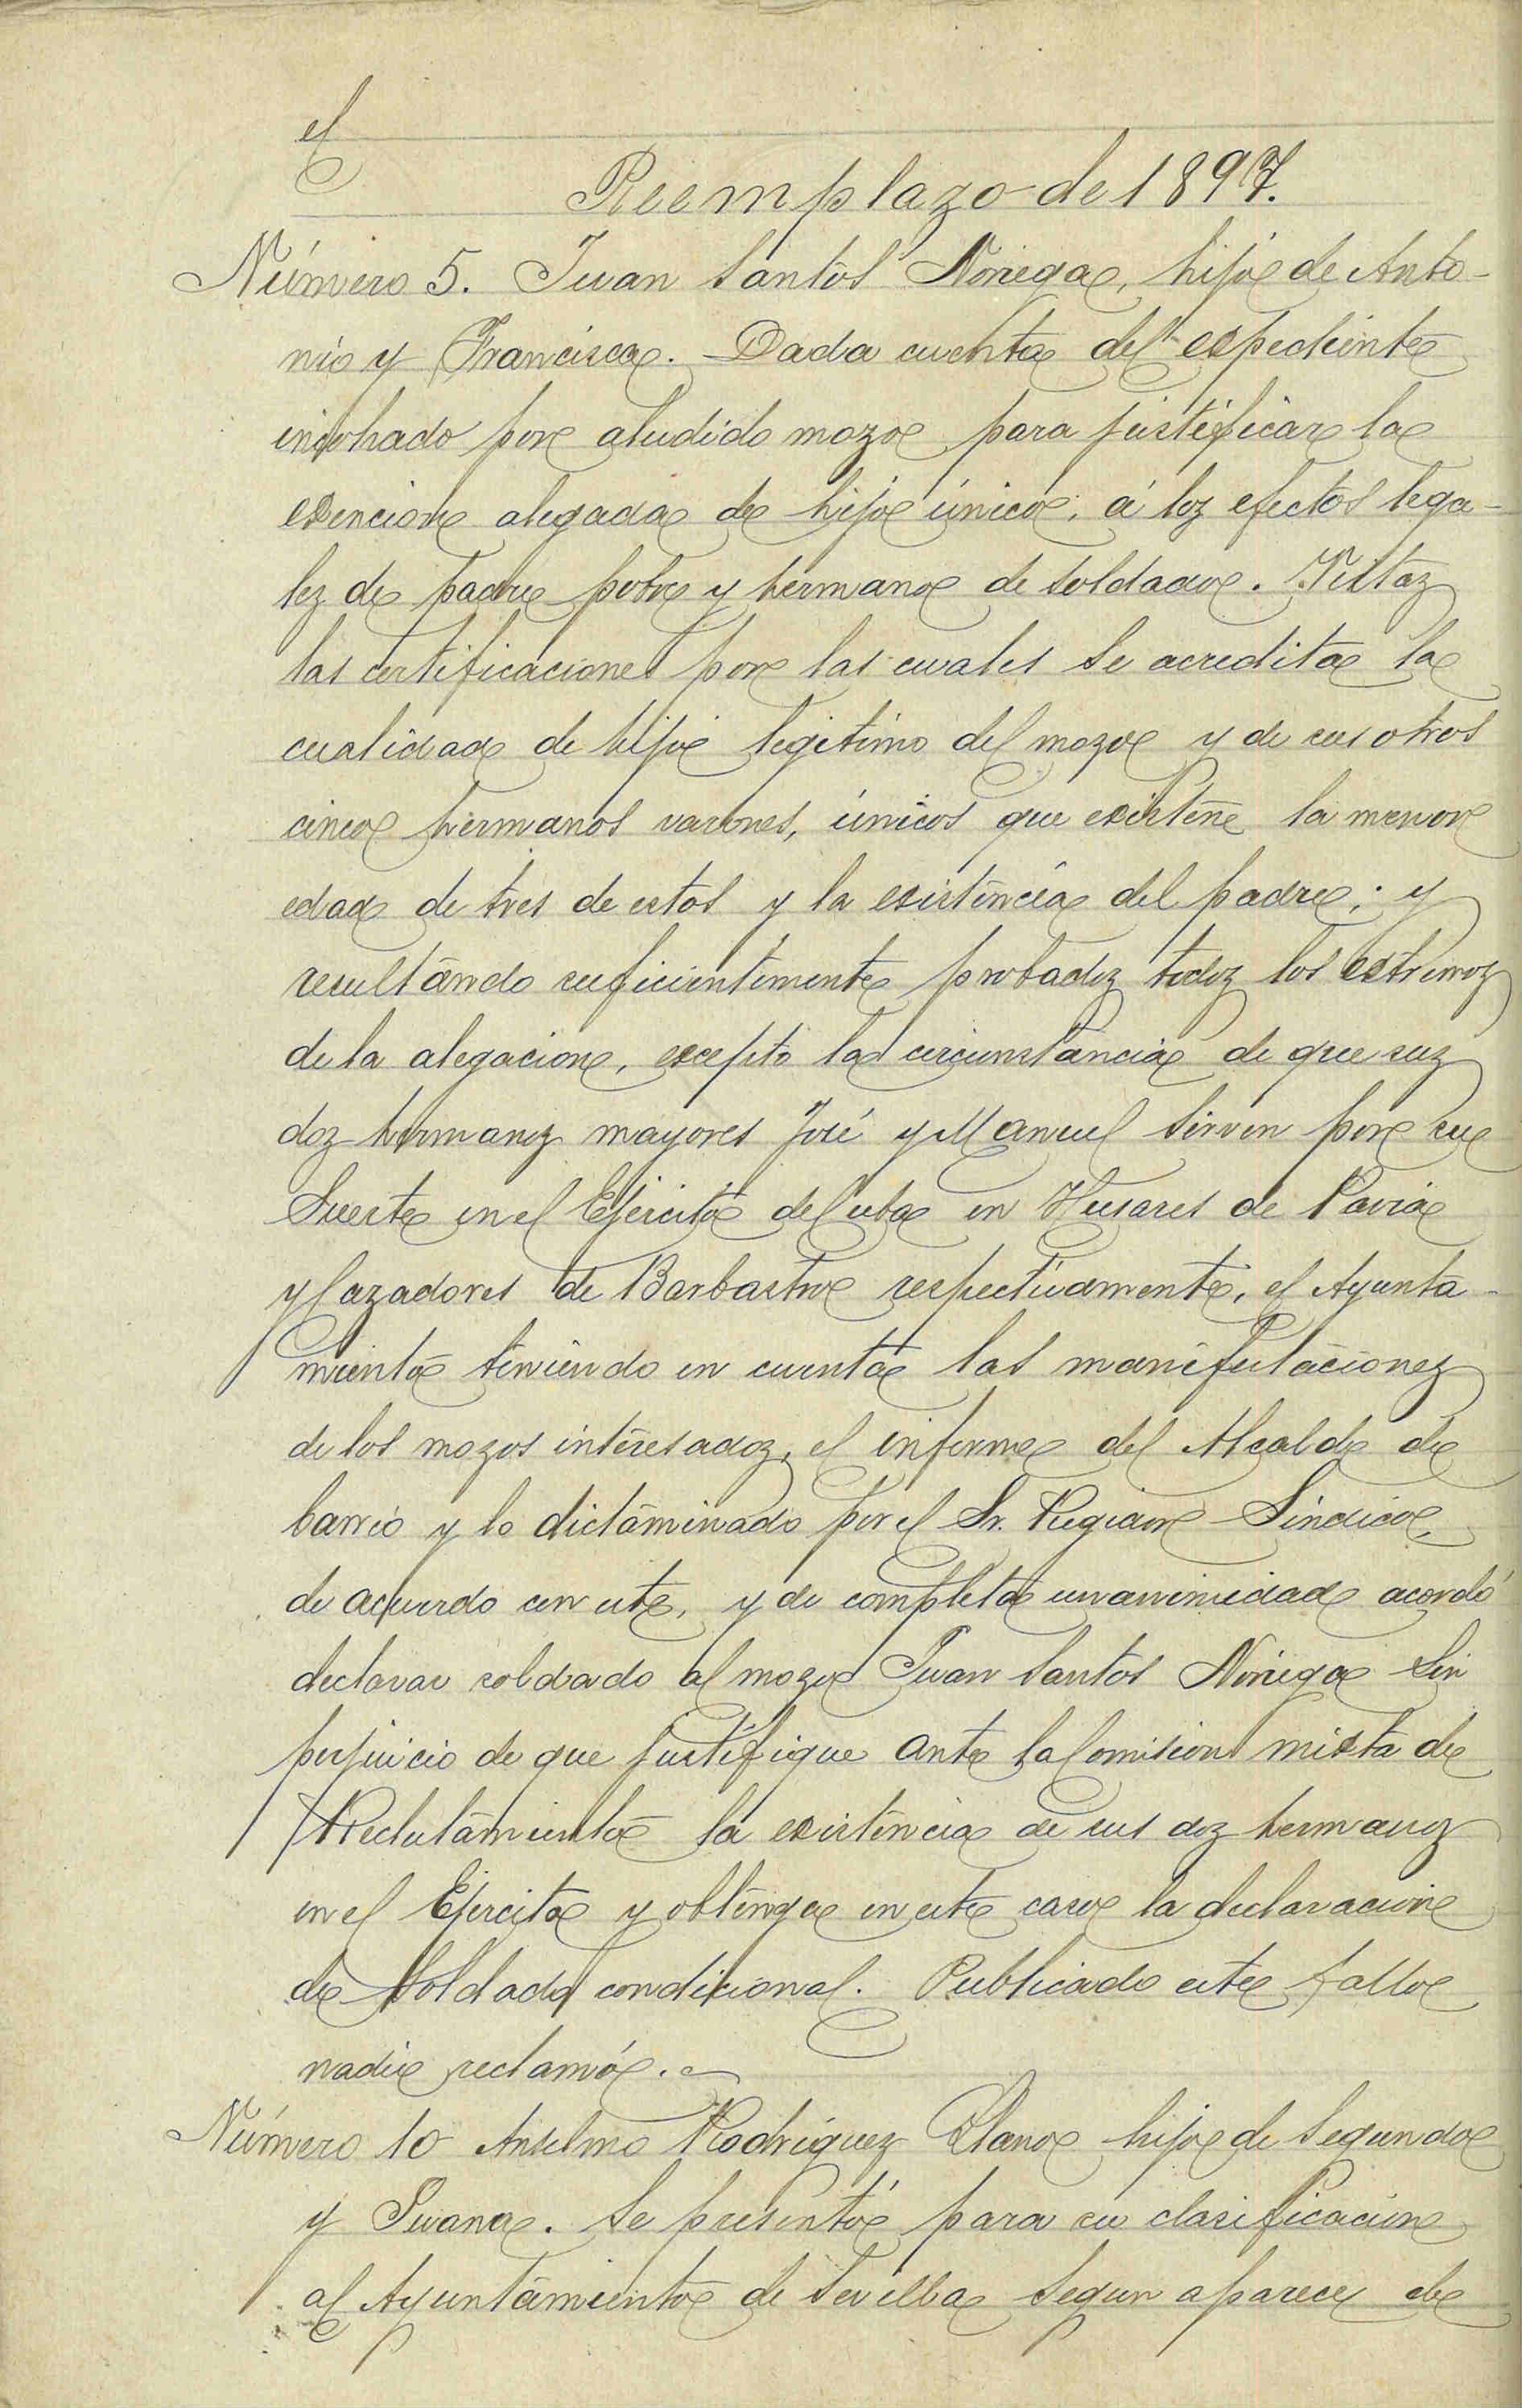 el
Reemplazo de 1897.
Número 5. Juan Santos Noriega, hijo de Anto-
nio y Francisca. Dada cuenta del espediente
incohado por aludido mozo para justificar la
esencion alegada de hijo único, á los efectos lega-
les de padre pobre y hermano de soldado. Vistas
las certificaciones por las cuales se acredita la
cualidad de hijo legitimo del mozo y de sus otros
cinco hermanos varones, únicos que existen la menor
edad de tres de estos y la existencia del padre; y
resultando suficientemente probados todos los estremos
de la alegacion, excepto la circunstancia de que sus
dos hermanos mayores José y Manuel sirven por su
Suerte en el Ejército de Cuba en Husares de Pavia
y Cazadores de Barbastro respectivamente, el Ayunta-
miento teniendo en cuenta las manifestaciones
de los mozos interesados, el informe del Alcalde de
barrio y lo dictaminado por el Sr. Regidor Síndico,
de acuerdo con este, y de completa unanimidad acordó
declarar soldado al mozo Juan Santos Noriega sin
perjuicio de que justifique ante la Comision mixta de
Reclutamiento la existencia de sus dos hermanos
en el Ejercito y obtenga en este caso la declaracion
de Soldado condicional. Publicado este fallo
nadie reclamó.
Número 10 Anselmo Rodríguez Llano hijo de Segundo
y Juana. Se presentó para su clasificacion
al Ayuntamiento de Sevilla segun aparece de